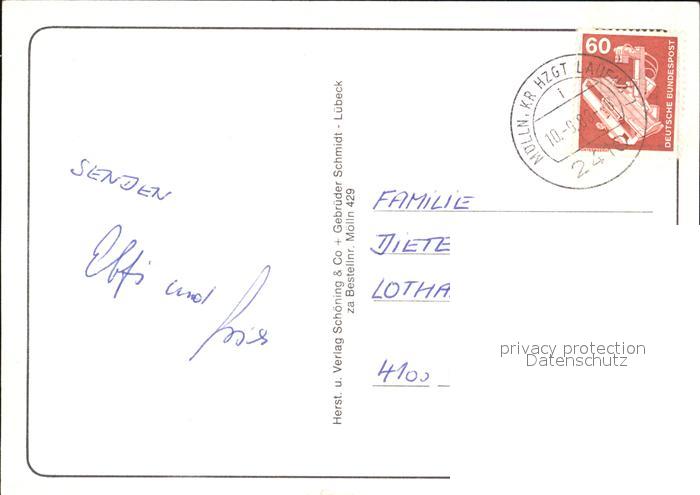 SENDEN
und
Herst. u. Verlag Schöning & Co + Gebrüder Schmidt - Lübeck
za Bestellnr. Mölln 429
60
DEUTSCHE BUNDESPOST
MÖLLN, KR HZGT LAUENB
FAMILIE
DIETE
LOTHA
4100
privacy protection
Datenschutz